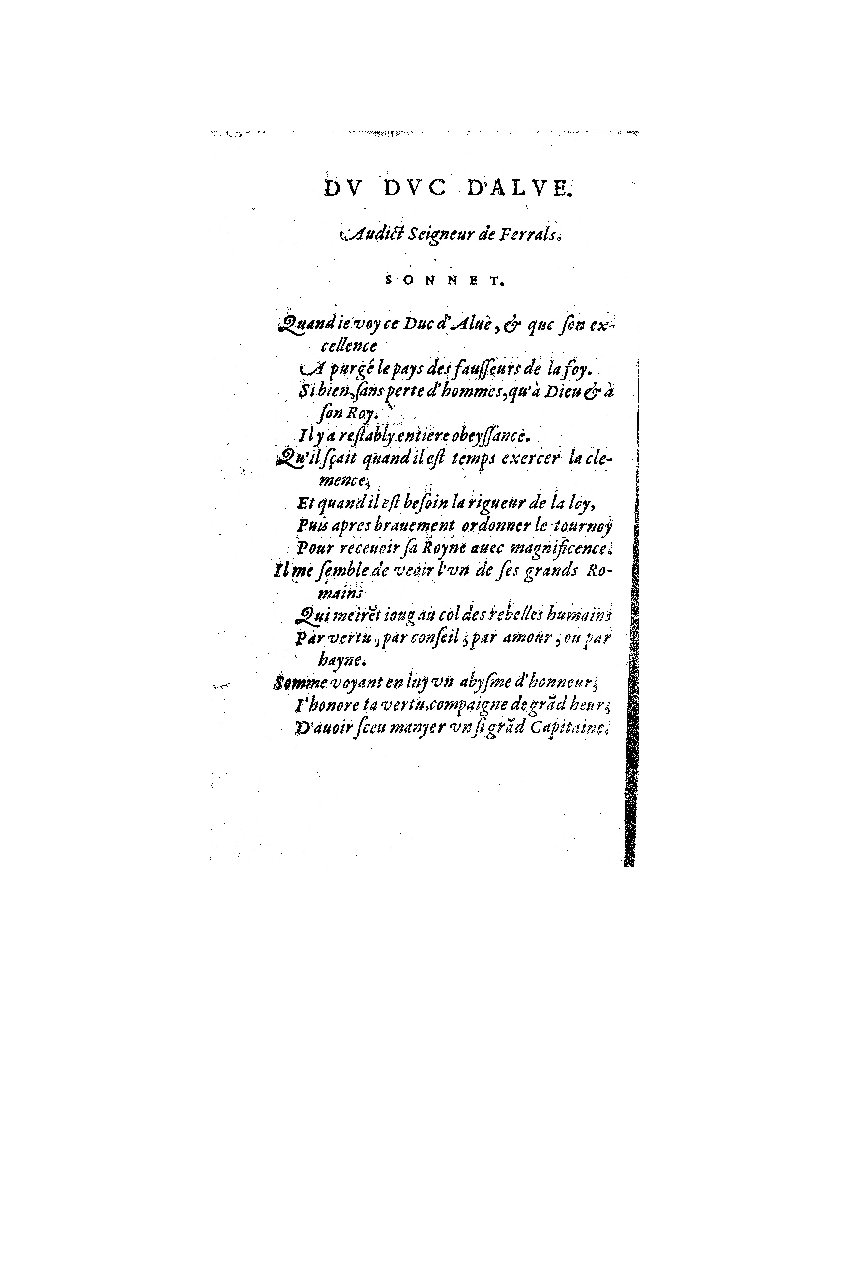 DV DVC D'ALVE.
Audict Seigneur de Ferrals.
SONNET.
Quand ie voy ce Duc d'Alue, & que ſon ex-
cellence
A purgé le pays des fauſſeurs de la foy.
Si bien, ſans perte d'hommes, qu'à Dieu & à
ſon Roy.
Il y a reſtably entiere obeyſſance.
Qu'il ſçait quand il eſt temps exercer la cle-
mence,
Et quand il eſt beſoin la rigueur de la loy,
Puis apres brauement ordonner le tournoy
Pour receuoir ſa Royne auec magnificence.
Il me ſemble de veoir l'vn de ſes grands Ro-
mains
Qui meirēt ioug au col des rebelles humains
Par vertu, par conſeil, par amour, ou par
hayne.
Somme voyant en luy vn abyſme d'honneur,
I'honore ta vertu, compaigne de grād heur,
D'auoir ſceu manyer vn ſi grād Capitaine.